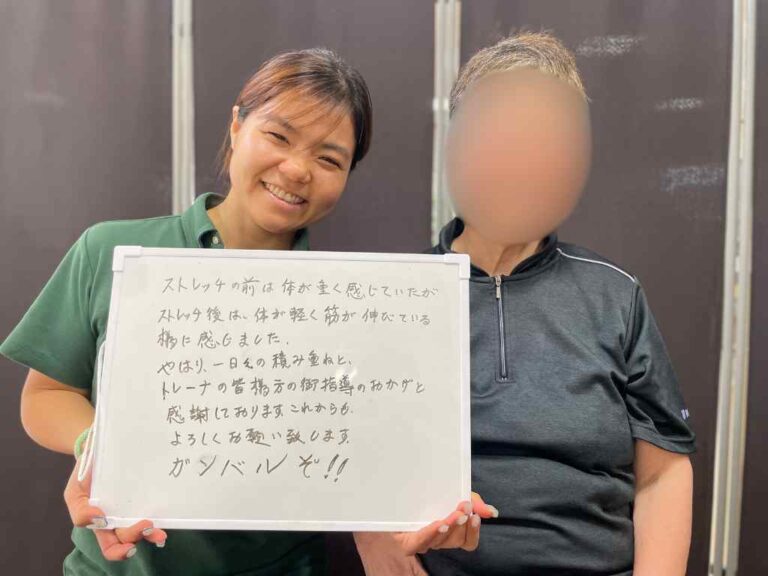 ストレッチの前は体が重く感じていたが
ストレッチ後は、体が軽く筋が伸びている
様に感じました。
やはり、一日その積み重ねと、
トレーナの皆様方の御指導のおかげと
感謝しております。これからも、
よろしくお願い致します。
ガンバルぞ!!